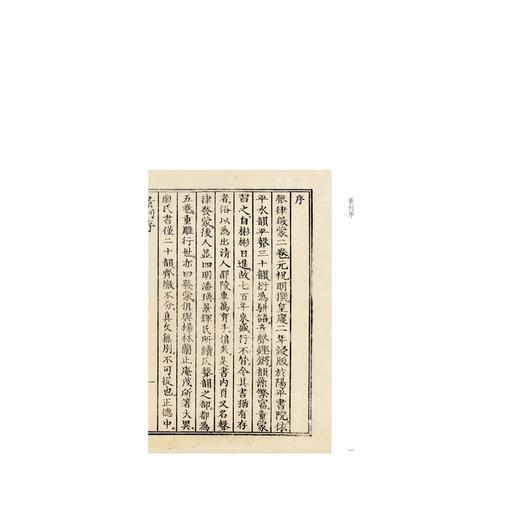 景刊序
序
聲律發蒙二卷元祝明撰皇慶二年鋟版於陽平書院依
平水韻平聲三十韻衍為駢語音聲鏗鏘韻藻繁富童蒙
習之自彬彬日進故七百年來盛行不替今其書猶有存
者俗以為出清人邵陵車萬育手傎矣是書內頁又名聲
律發蒙後人並四明潘瑛景輝氏所續仄聲韻之部都為
五卷重雕行世亦曰發蒙俱與楊林蘭止庵茂所著大異
蘭氏書僅二十韻齊微不分真文無別不可從也正德中
景刊序 一